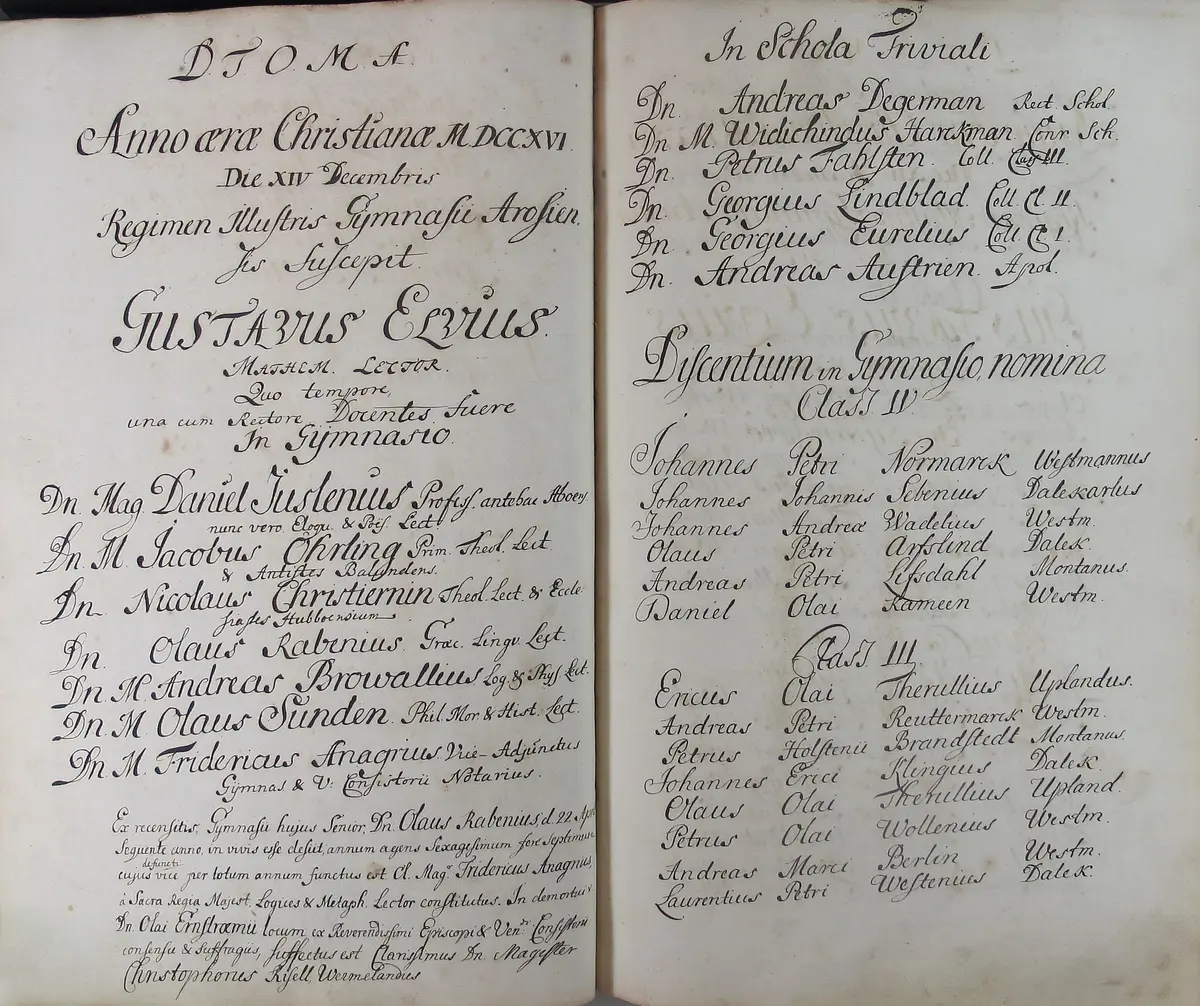 D T O. M. Æ.
Anno æræ Christianæ M.DCCXVI.
Die XIV Decembris
Regimen Illustris Gymnasii Arosien
sis suscepit.
GUSTAVUS ELVIUS.
MATHEM. LECTOR.
Quo tempore,
una cum Rectore Docentes fuere
In Gymnasio.
Dn. Mag. Daniel Juslenius Profess. antehac Aboens.
nunc vero. Eloqu. & Poës. Lect.
Dn. M. Jacobus Öhrling Prim. Theol. Lect.
& Antistes Balundens.
Dn. Nicolaus Christiernin Theol. Lect. & Eccle-
siastes Hubboensium.
Dn. Olaus Rabenius. Græc. Lingv. Lect.
Dn. M. Andreas Browallius Log. & Phys. Lect.
Dn. M Olaus Sunden. Phil. Mor. & Hist. Lect.
Dn M. Fridericus Anagrius. Vice-Adjunctus
Gymnas & V. Consistorii Notarius.
Ex recensitis, Gymnasii hujus Senior, Dn. Olaus Rabenius d. 22 Apr.
Sequente anno, in vivis esse desiit, annum agens Sexagesimum fere Septimum
defuncti
cujus vice per totum annum functus est Cl. Magr. Fridericus Anagrius,
à Sacra Regia Majest. Logices & Metaph. Lector constitutus. In demortui
Dn. Olai Ernstræmii locum ex Reverendissimi Episcopi & Ven. Consistorii
consensu & Suffragiis, suffectus est Clarissimus Dn. Magister
Christophorus Risell Wermelandus
In Schola Triviali
Dn. Andreas Degerman Rect. Schol.
Dn. M. Widichindus Harckman Conr Sch.
Dn. Petrus Fahlsten. Coll. Class III.
Dn. Georgius Lindblad. Coll. Cl. II.
Dn. Georgius Eurelius Coll. Cl I.
Dn. Andreas Austrien. Apol.
Discentium in Gymnasio, nomina
Class. IV.
Johannes Petri Normarck Westmannus
Johannes Johannis Sebenius Dalekarlus
Johannes Andreæ Wadelius Westm.
Olaus Petri Arfslind Dalek.
Andreas Petri Lissdahl Montanus.
Daniel Olai Kameen Westm.
Class. III.
Ericus Olai Therullius Uplandus.
Andreas Petri Reuttermarck Westm.
Petrus Holstenii Brandstedt Montanus.
Johannes Erici Klingius Dalek.
Olaus Olai Therullius Upland.
Petrus Olai Wollenius Westm.
Andreas Marci Berlin Westm.
Laurentius Petri Westenius Dalek.